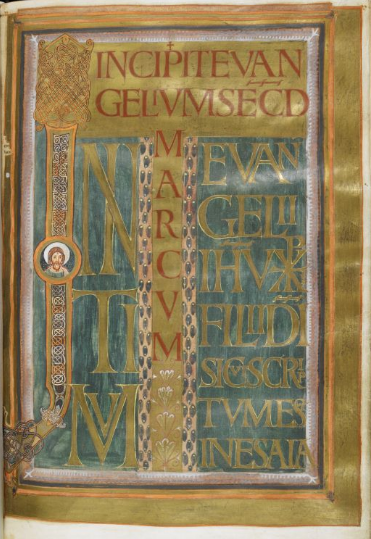 INCIPIT EVAN
GELIVM SECD
MARCVM
INI
TI
VM
EVAN
GELII
IHV XPI
FILII DI
SIC SCRI
TVM ES
IN ESAIA